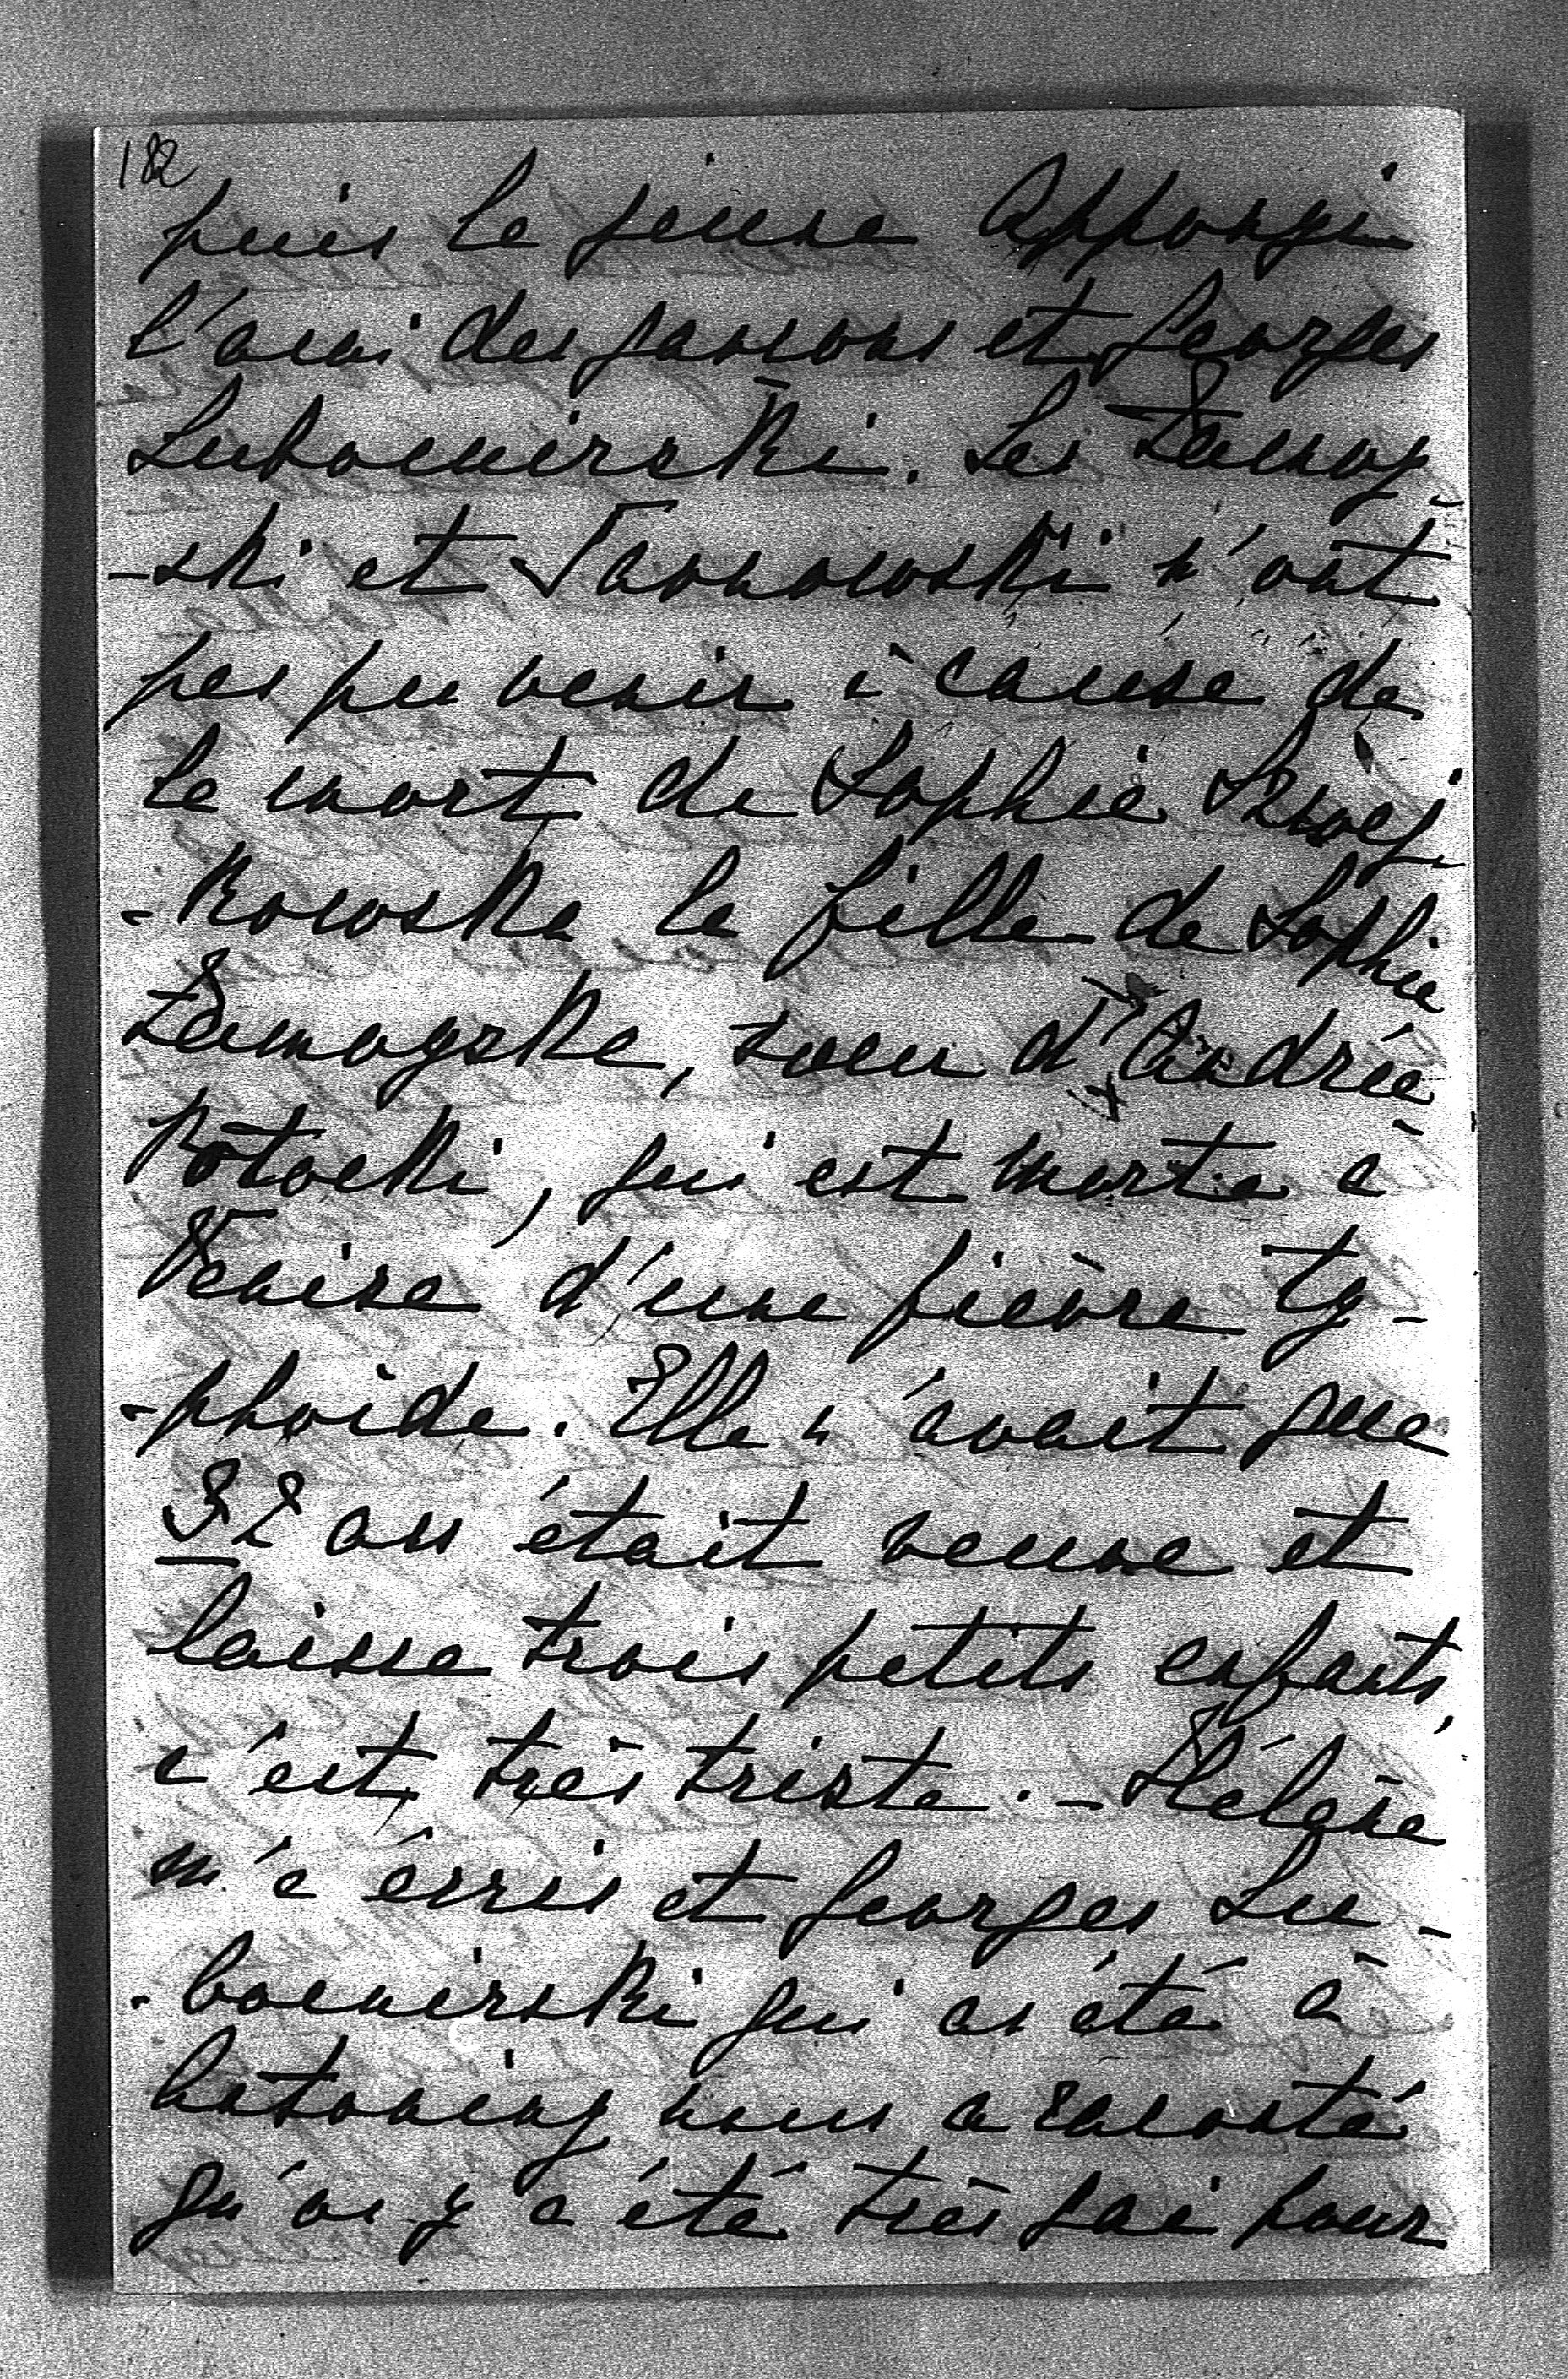 182
puis le jeune Apponyi
l'ami des garçons et Georges
Lubomirski. Les Zamoy-
-ski et Tarnowski n'ont
pas pu venir à cause de
la mort de Sophie
-kowska la fille de Sophie
Zamoyska, sœur d'Andrée
Potocki, qui est morte à
Venise d'une fièvre ty-
-phoïde. Elle n'avait que
32 ans était veuve et
laisse trois petits enfants,
c'est très triste. - Hélène
m'a écris et Georges Lu-
-bomirski qui as été à
nous a raconté
qu'on y a été très gai pour